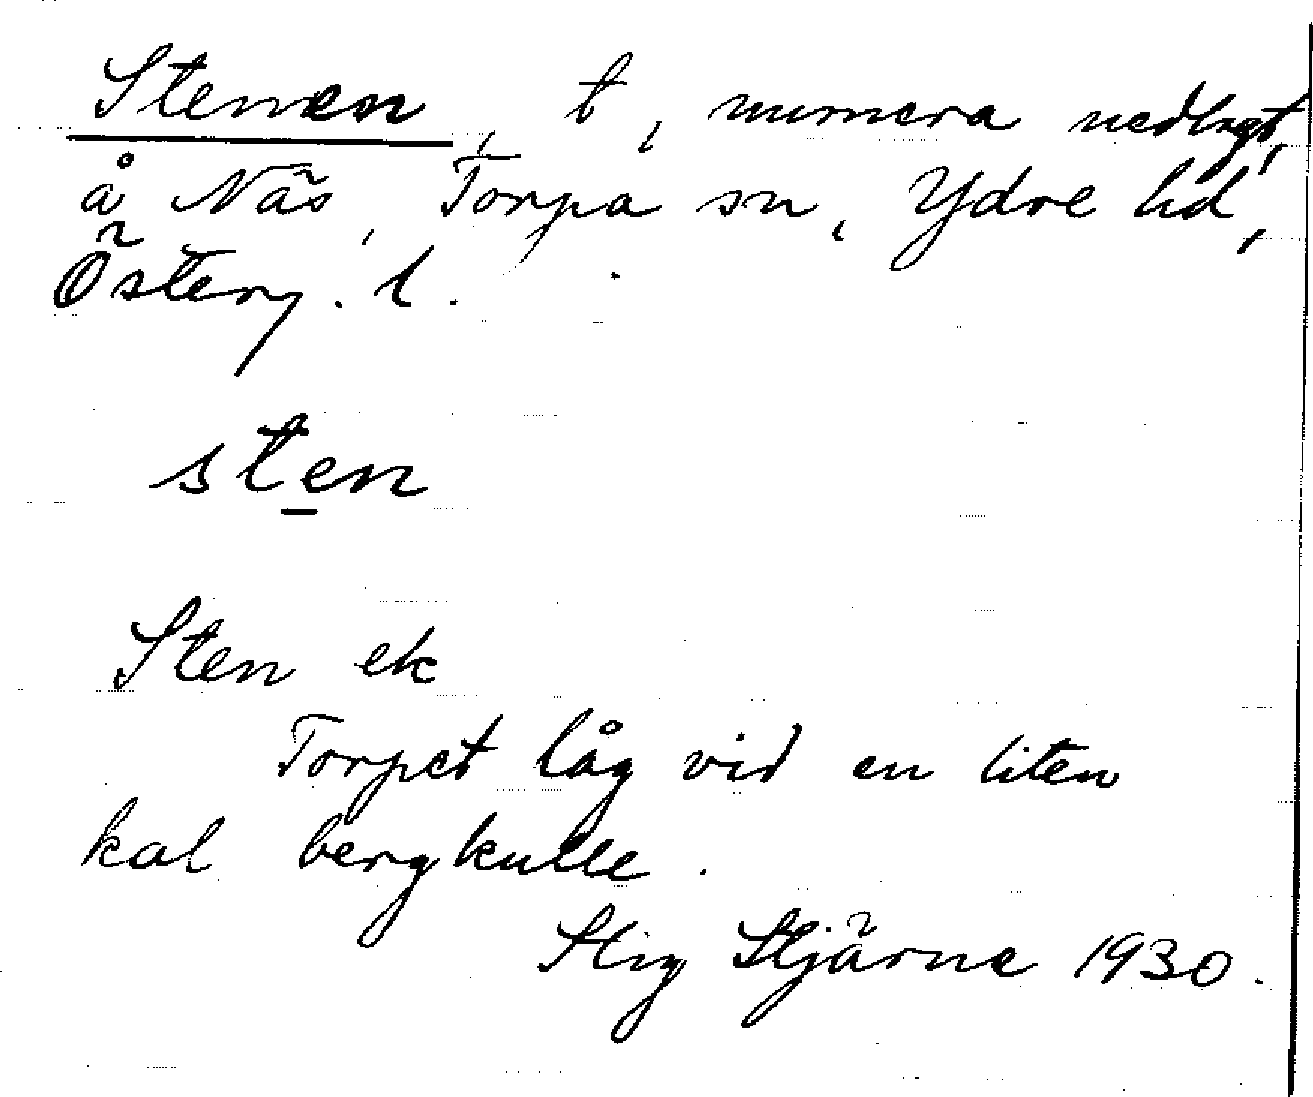 Stenen, t, numera nedlagt,
å Näs, Torpa sn, Ydre hd,
Österg. l.
sten
Sten ek
Torpet låg vid en liten
kal bergkulle.
Stig Stjärne 1930.